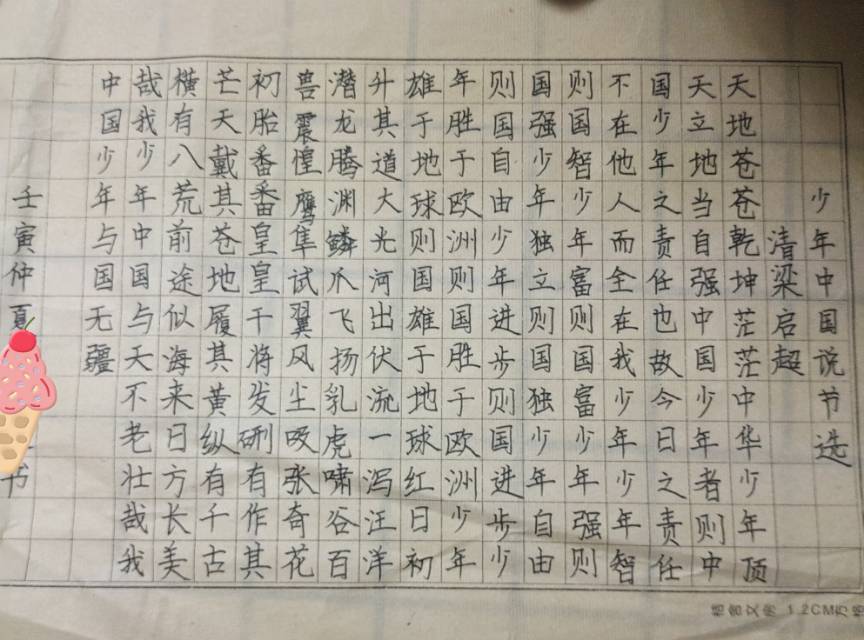 少年中国说节选
清梁启超
天地苍苍乾坤茫茫中华少年顶
天立地当自强中国少年者则中
国少年之责任也故今日之责任
不在他人而全在我少年少年智
则国智少年富则国富少年强则
国强少年独立则国独少年自由
则国自由少年进步则国进步少
年胜于欧洲则国胜于欧洲少年
雄于地球则国雄于地球红日初
升其道大光河出伏流一泻汪洋
潜龙腾渊鳞爪飞扬乳虎啸谷百
兽震惶鹰隼试翼风尘吸张奇花
初胎番番皇皇干将发硎有作其
芒天戴其苍地履其黄纵有千古
横有八荒前途似海来日方长美
哉我少年中国与天不老壮哉我
中国少年与国无疆
壬寅仲夏书
1.2CM